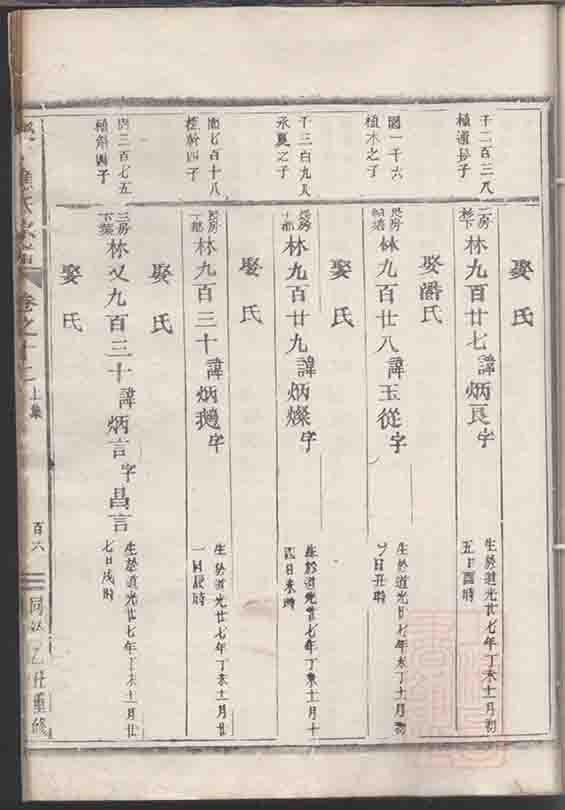 千二百三八
積通長子
二房
林九百廿七諱炳良字
生於道光廿七年丁未十一月初
五日酉時
娶氏
國一千六
積木之子
長房
林九百廿八諱玉從字
生於道光廿七年丁未十一月初
日丑時
娶潘氏
千三百九八
永夏之子
長房
林九百廿九諱炳燦字
生於道光廿七年丁未十一月十
四日未時
娶氏
七百十八
四子
長房
林九百三十諱炳字
生於道光廿七年丁未十一月廿
一日辰時
娶氏
三百七五
四子
三房
林又九百三十諱炳言字昌言
生於道光廿七年丁未十一月廿
七日戌時
娶氏
娶氏
氏宗譜
卷之十二
上集
百六
同治乙丑重修